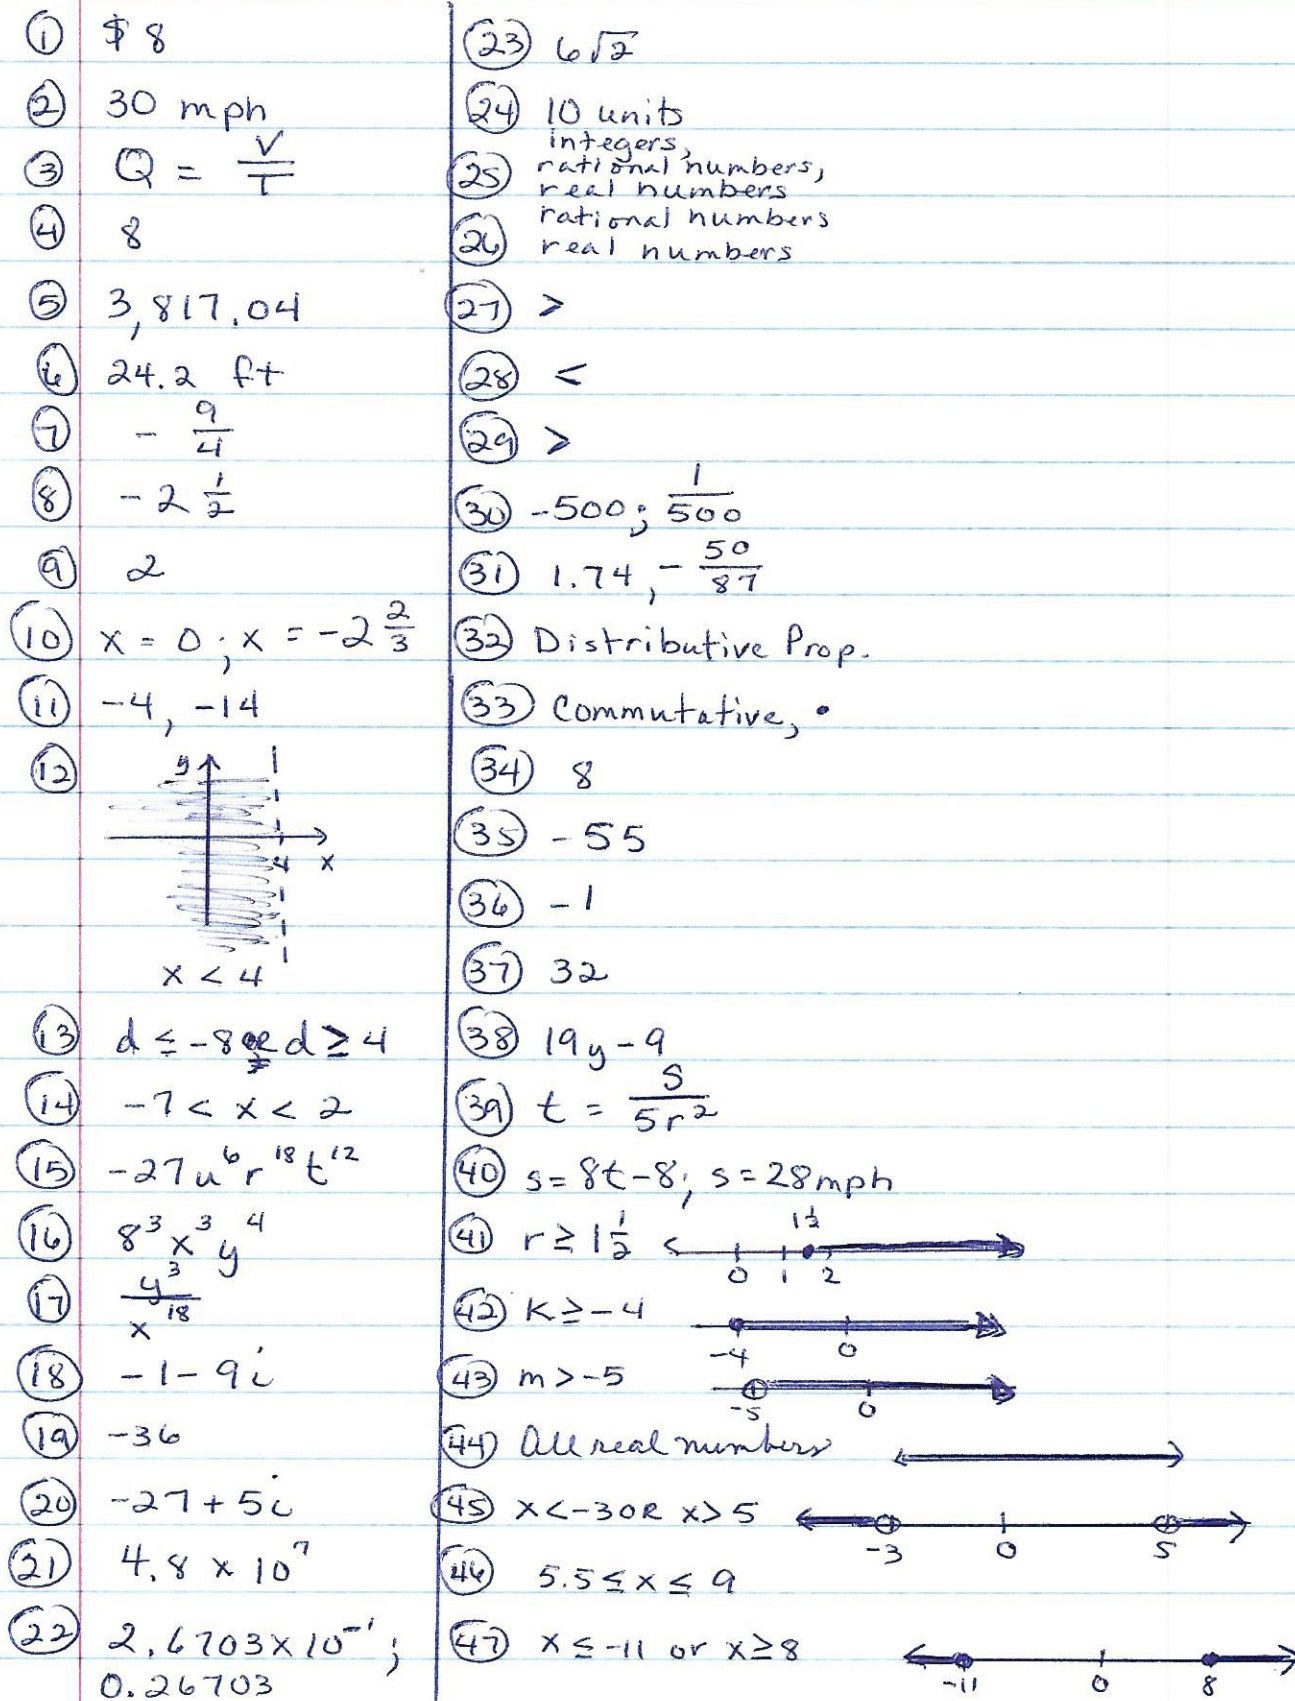 ① $ 8
② 30 mph
③ Q = V/T
④ 8
⑤ 3,817.04
⑥ 24.2 ft
⑦ - 9/4
⑧ -2 1/2
⑨ 2
⑩ x = 0 ; x = -2 2/3
⑪ -4, -14
⑫ y
4 x
x < 4
⑬ d ≤ -8 OR d ≥ 4
⑭ -7 < x < 2
⑮ -27u⁶r¹⁸t¹²
⑯ 8³x³y⁴
⑰ y³/x¹⁸
⑱ -1-9i
⑲ -36
⑳ -27+5i
㉑ 4.8 × 10⁷
㉒ 2.6703×10⁻¹;
0.26703
㉓ 6√2
㉔ 10 units
㉕ integers,
rational numbers,
real numbers
㉖ rational numbers
real numbers
㉗ >
㉘ <
㉙ >
㉚ -500; 1/500
㉛ 1.74, - 50/87
㉜ Distributive Prop.
㉝ Commutative, •
㉞ 8
㉟ -55
㊱ -1
㊲ 32
㊳ 19y-9
㊴ t = S/5r²
㊵ s=8t-8; s=28mph
㊶ r ≥ 1 1/2 1 1/2
0 1 2
㊷ K ≥ -4
-4 0
㊸ m > -5
-5 0
㊹ All real numbers
㊺ x<-3 OR x>5
-3 0 5
㊻ 5.5 ≤ x ≤ 9
㊼ x ≤ -11 or x ≥ 8
-11 0 8